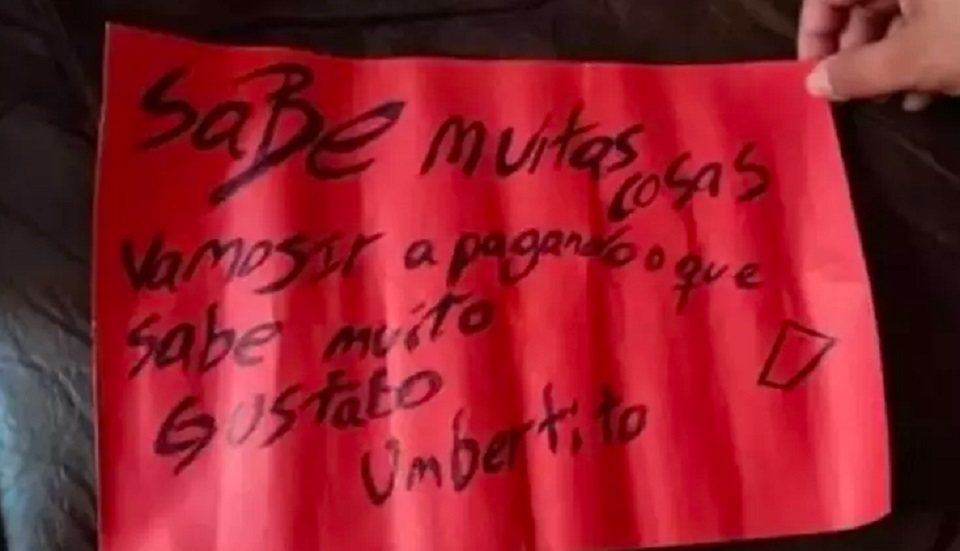 SaBe muitas cosas
Vamosir a pagando o que
sabe muito
GUStabo
Umbertito